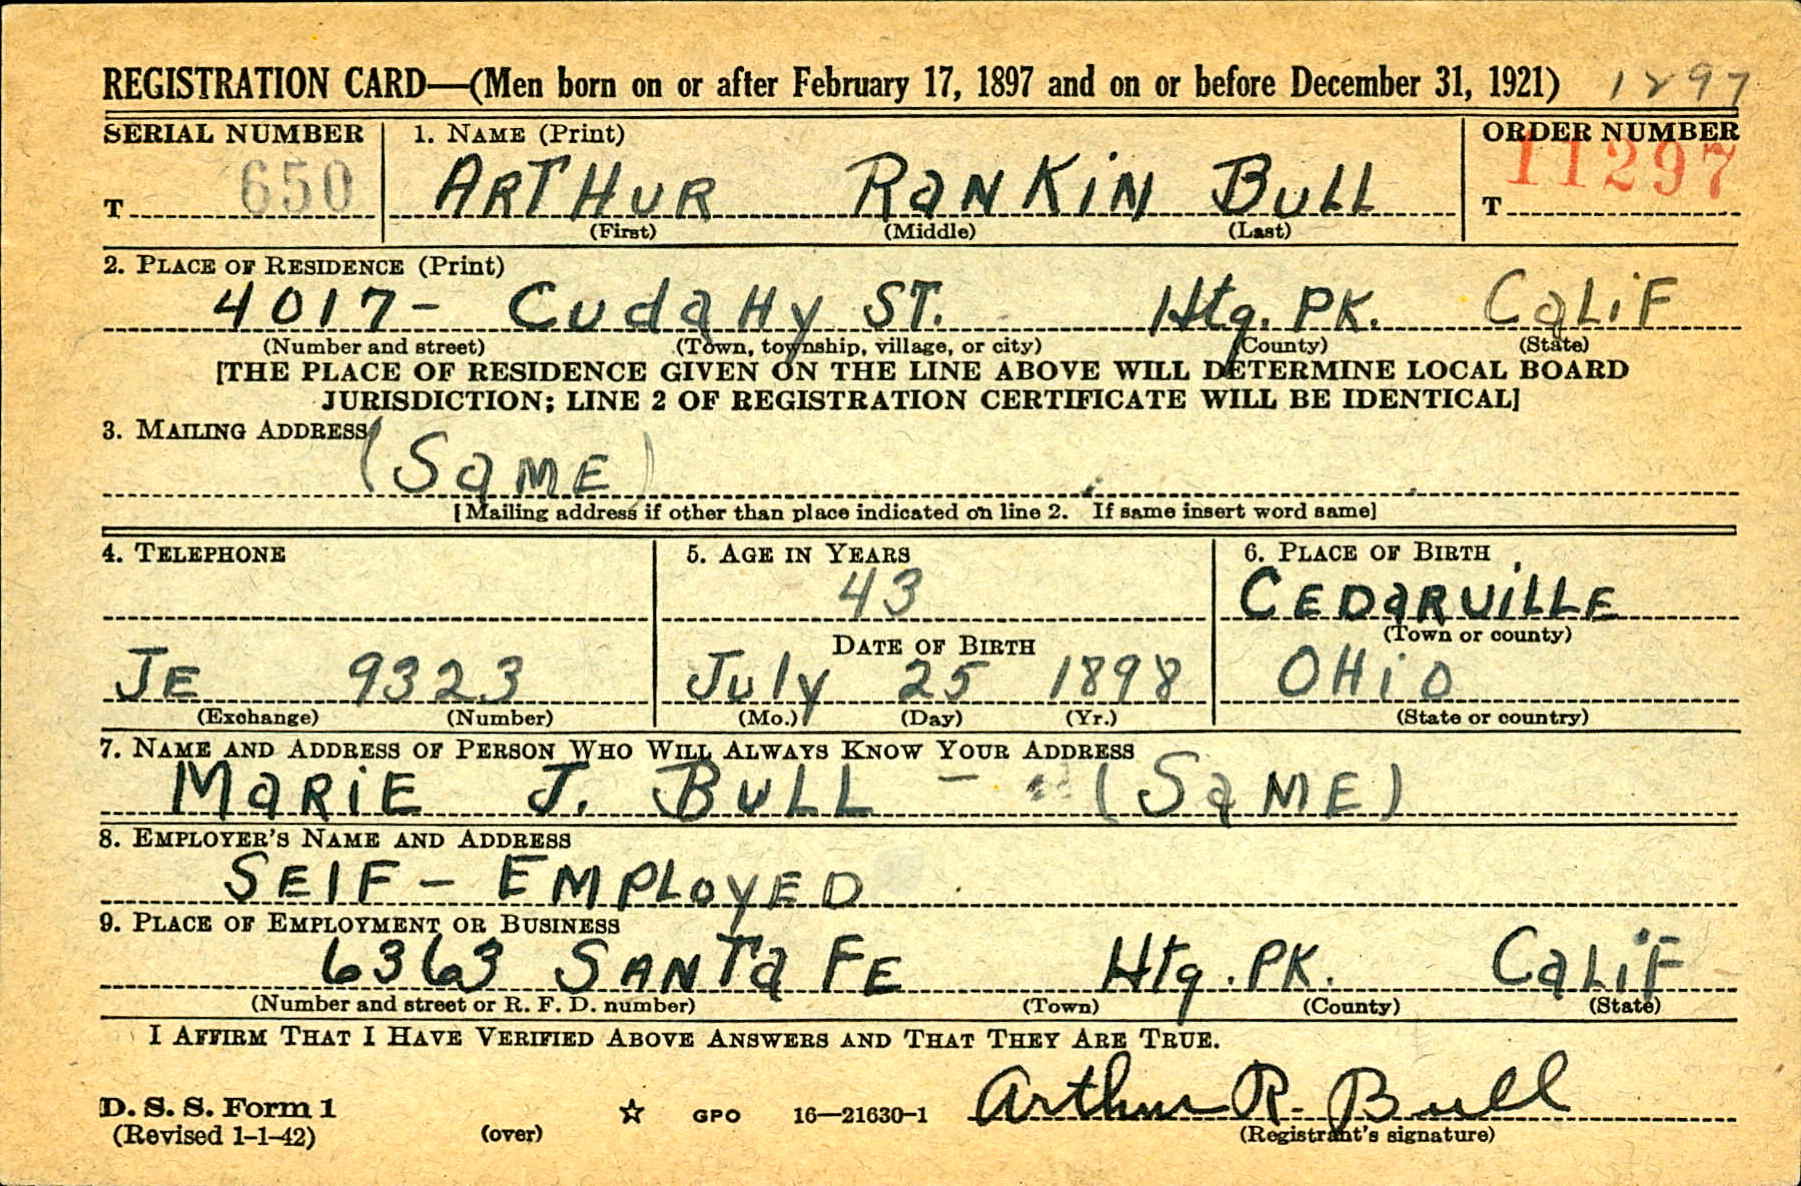 REGISTRATION CARD—(Men born on or after February 17, 1897 and on or before December 31, 1921) 1897
SERIAL NUMBER 1. NAME (Print) ORDER NUMBER
T 650 ARTHUR RANKIN BULL T 11297
(First) (Middle) (Last)
2. PLACE OF RESIDENCE (Print)
4017- CUDAHY ST. Htg. PK. CALIF
(Number and street) (Town, township, village, or city) (County) (State)
[THE PLACE OF RESIDENCE GIVEN ON THE LINE ABOVE WILL DETERMINE LOCAL BOARD
JURISDICTION; LINE 2 OF REGISTRATION CERTIFICATE WILL BE IDENTICAL]
3. MAILING ADDRESS
(SAME)
[Mailing address if other than place indicated on line 2. If same insert word same]
4. TELEPHONE 5. AGE IN YEARS 6. PLACE OF BIRTH
43 CEDARVILLE
DATE OF BIRTH (Town or county)
JE 9323 July 25 1898 OHIO
(Exchange) (Number) (Mo.) (Day) (Yr.) (State or country)
7. NAME AND ADDRESS OF PERSON WHO WILL ALWAYS KNOW YOUR ADDRESS
MARIE J. BULL - (SAME)
8. EMPLOYER'S NAME AND ADDRESS
SELF - EMPLOYED
9. PLACE OF EMPLOYMENT OR BUSINESS
6363 SANTA FE Htg. PK. CALIF
(Number and street or R. F. D. number) (Town) (County) (State)
I AFFIRM THAT I HAVE VERIFIED ABOVE ANSWERS AND THAT THEY ARE TRUE.
D. S. S. Form 1 Arthur R. Bull
(Revised 1-1-42) (over) ☆ GPO 16—21630-1 (Registrant's signature)